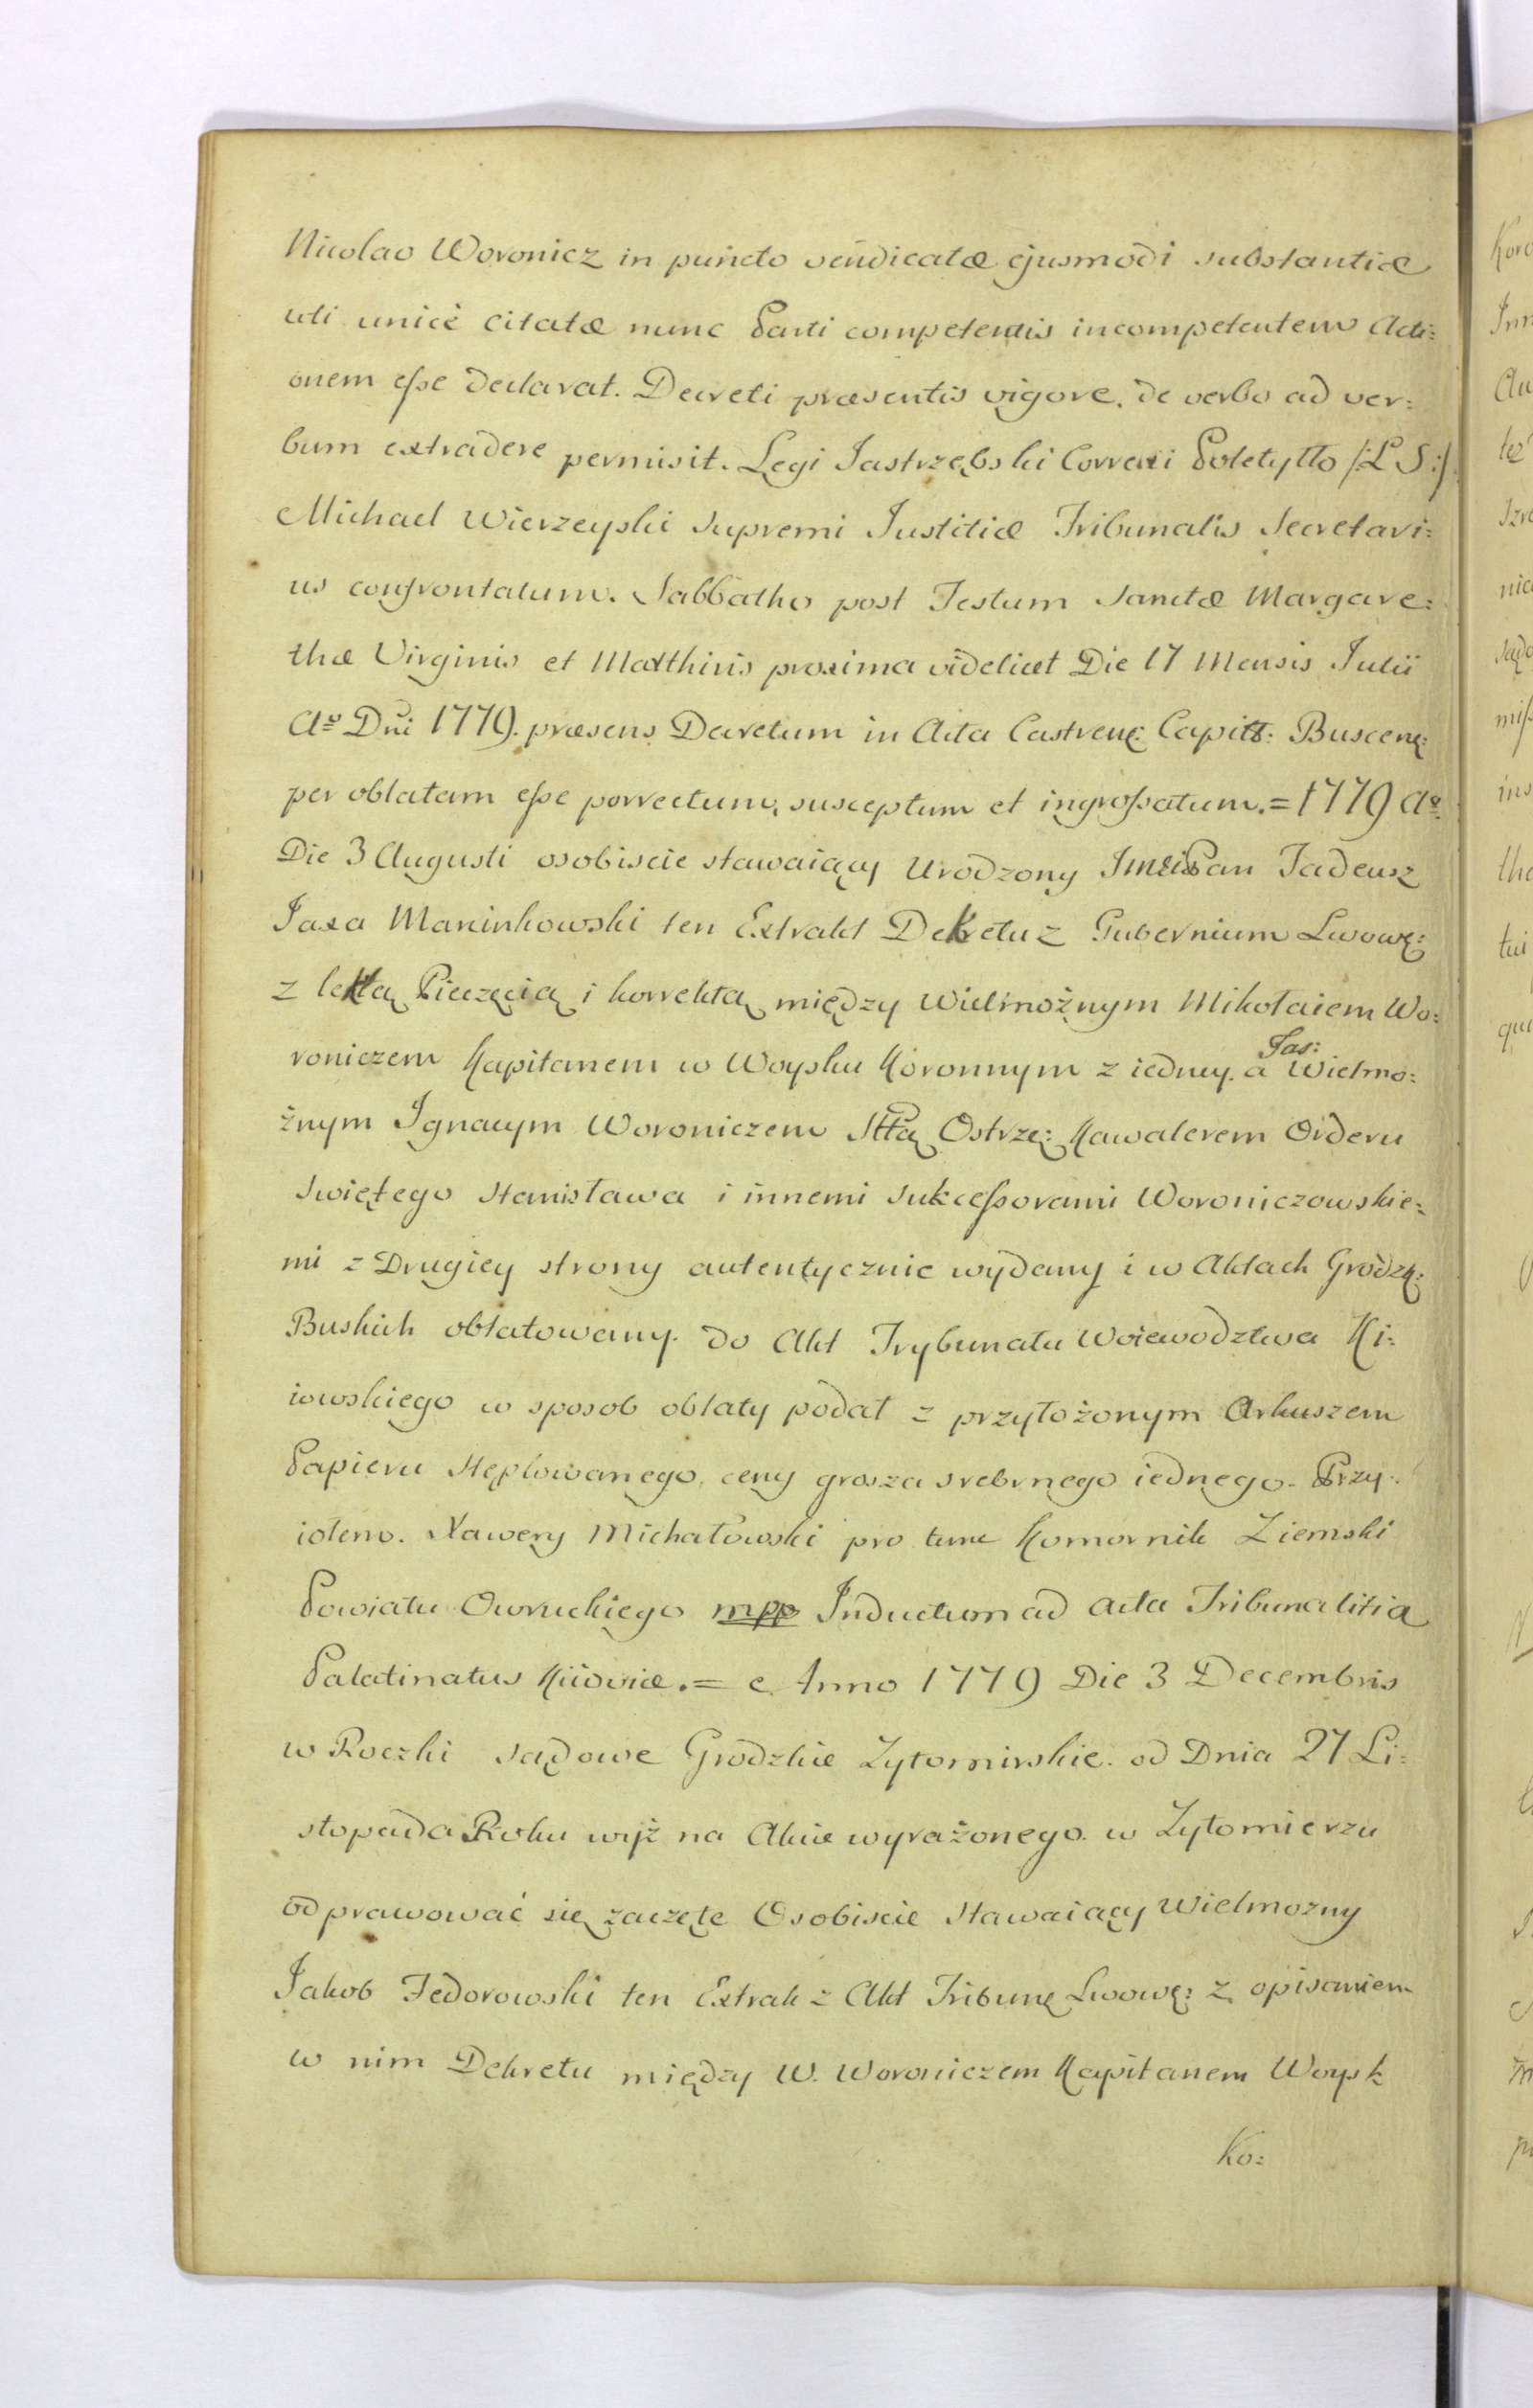 Nicolao Woronicz in puncto vendicatæ ejusmodi substantiæ
uti unicè citatæ nunc Parti competentis incompetentem Acti=
onem eſse declarat. Decreti præsentis vigore. de verbo ad ver=
bum extradere permisit. Legi Jastrzębski Correxi Poletyłło /:L S:/
Michael Wierzeyski Supremi Justitiæ Tribunalis Secretari=
us confrontatum. Sabbatho post Festum Sanctæ Margare=
thæ Virginis et Matthiris proxima videlicet Die 17 Mensis Julii
Aº Dni 1779. præsens Decretum in Acta Castrenę: Capitł: Buscenę:
per oblatam eſse porrectum, susceptum et ingroſsatum. = 1779 Aº
Die 3 Augusti osobiscie stawaiący Urodzony Pan Tadeusz
Jaxa Marcinkowski ten Extrakt Dekretu z Gubernium Lwowę:
z lektą Pieczęcią i korrektą między Wielmożnym Mikołaiem Wo=
roniczem Kapitanem w Woysku Koronnym z iedney. a Wielmo=
żnym Ignacym Woroniczem Sttą Ostrzę: Kawalerem Orderu
Swiętego Stanisława i innemi Sukceſsorami Woroniczowskie=
mi z Drugiey strony autentycznie wydany i w Aktach Grodzk:
Buskich oblatowany. do Akt Trybunału Woiewodztwa Ki=
iowskiego w sposob oblaty podał z przyłożonym Arkuszem
Papieru Stęplowanego, ceny grosza srebrnego iednego. Przy=
iołem. Xawery Michałowski pro tunc Komornik Ziemski
Powiatu Owruckiego mpp Inductum ad Acta Tribunalitia
Palatinatus Kiioviæ. = Anno 1779 Die 3 Decembris
w Roczki Sądowe Grodzkie Zytomirskie. od Dnia 27 Li=
stopada Roku wyż na Akcie wyrażonego. w Zytomierzu
odprawować się zaczęte Osobiscie Stawaiący Wielmozny
Jakob Fedorowski ten Extrak z Akt Tribunę Lwowę: z opisaniem
w nim Dekretu między W. Woroniczem Kapitanem Woysk
Ko=